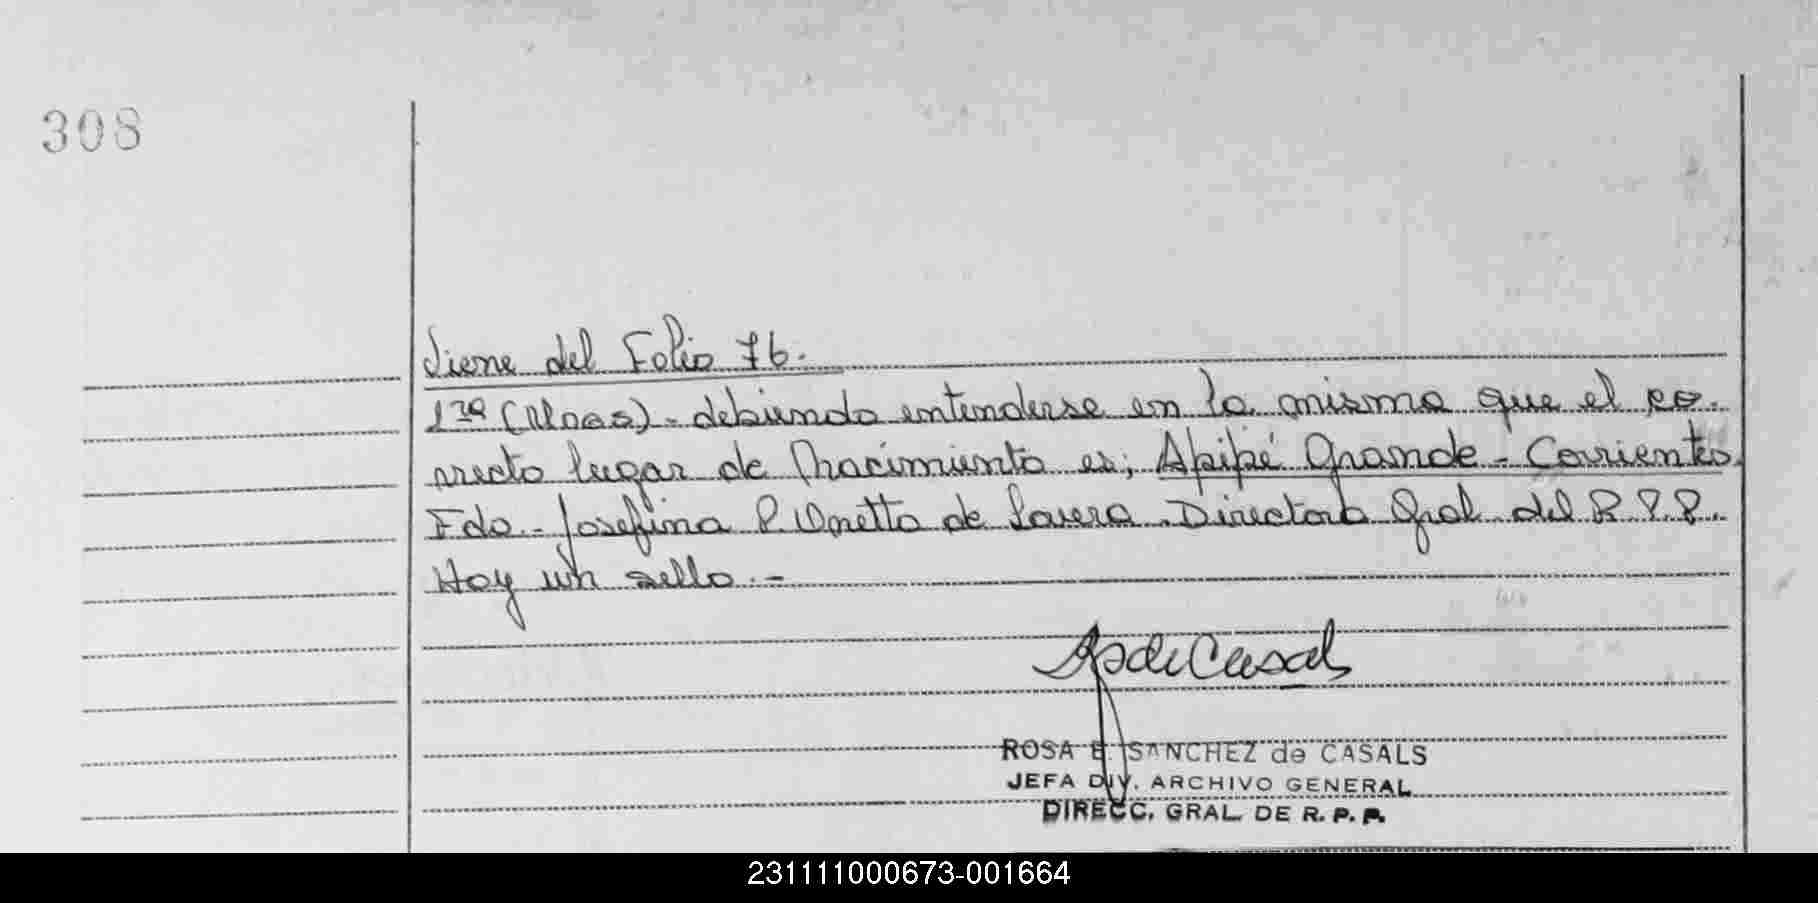 308
Viene del Folio 76.
1ra (Unas) - debiendo entenderse en la misma que el co-
rrecto lugar de Nacimiento es; Apipé Grande - Corrientes
Fdo.- Josefina P. Onetto de Lovera. Directora Gral del R P P.
Hay un sello.-
ROSA E. SANCHEZ de CASALS
JEFA DIV. ARCHIVO GENERAL
DIRECC. GRAL. DE R. P. P.
231111000673-001664